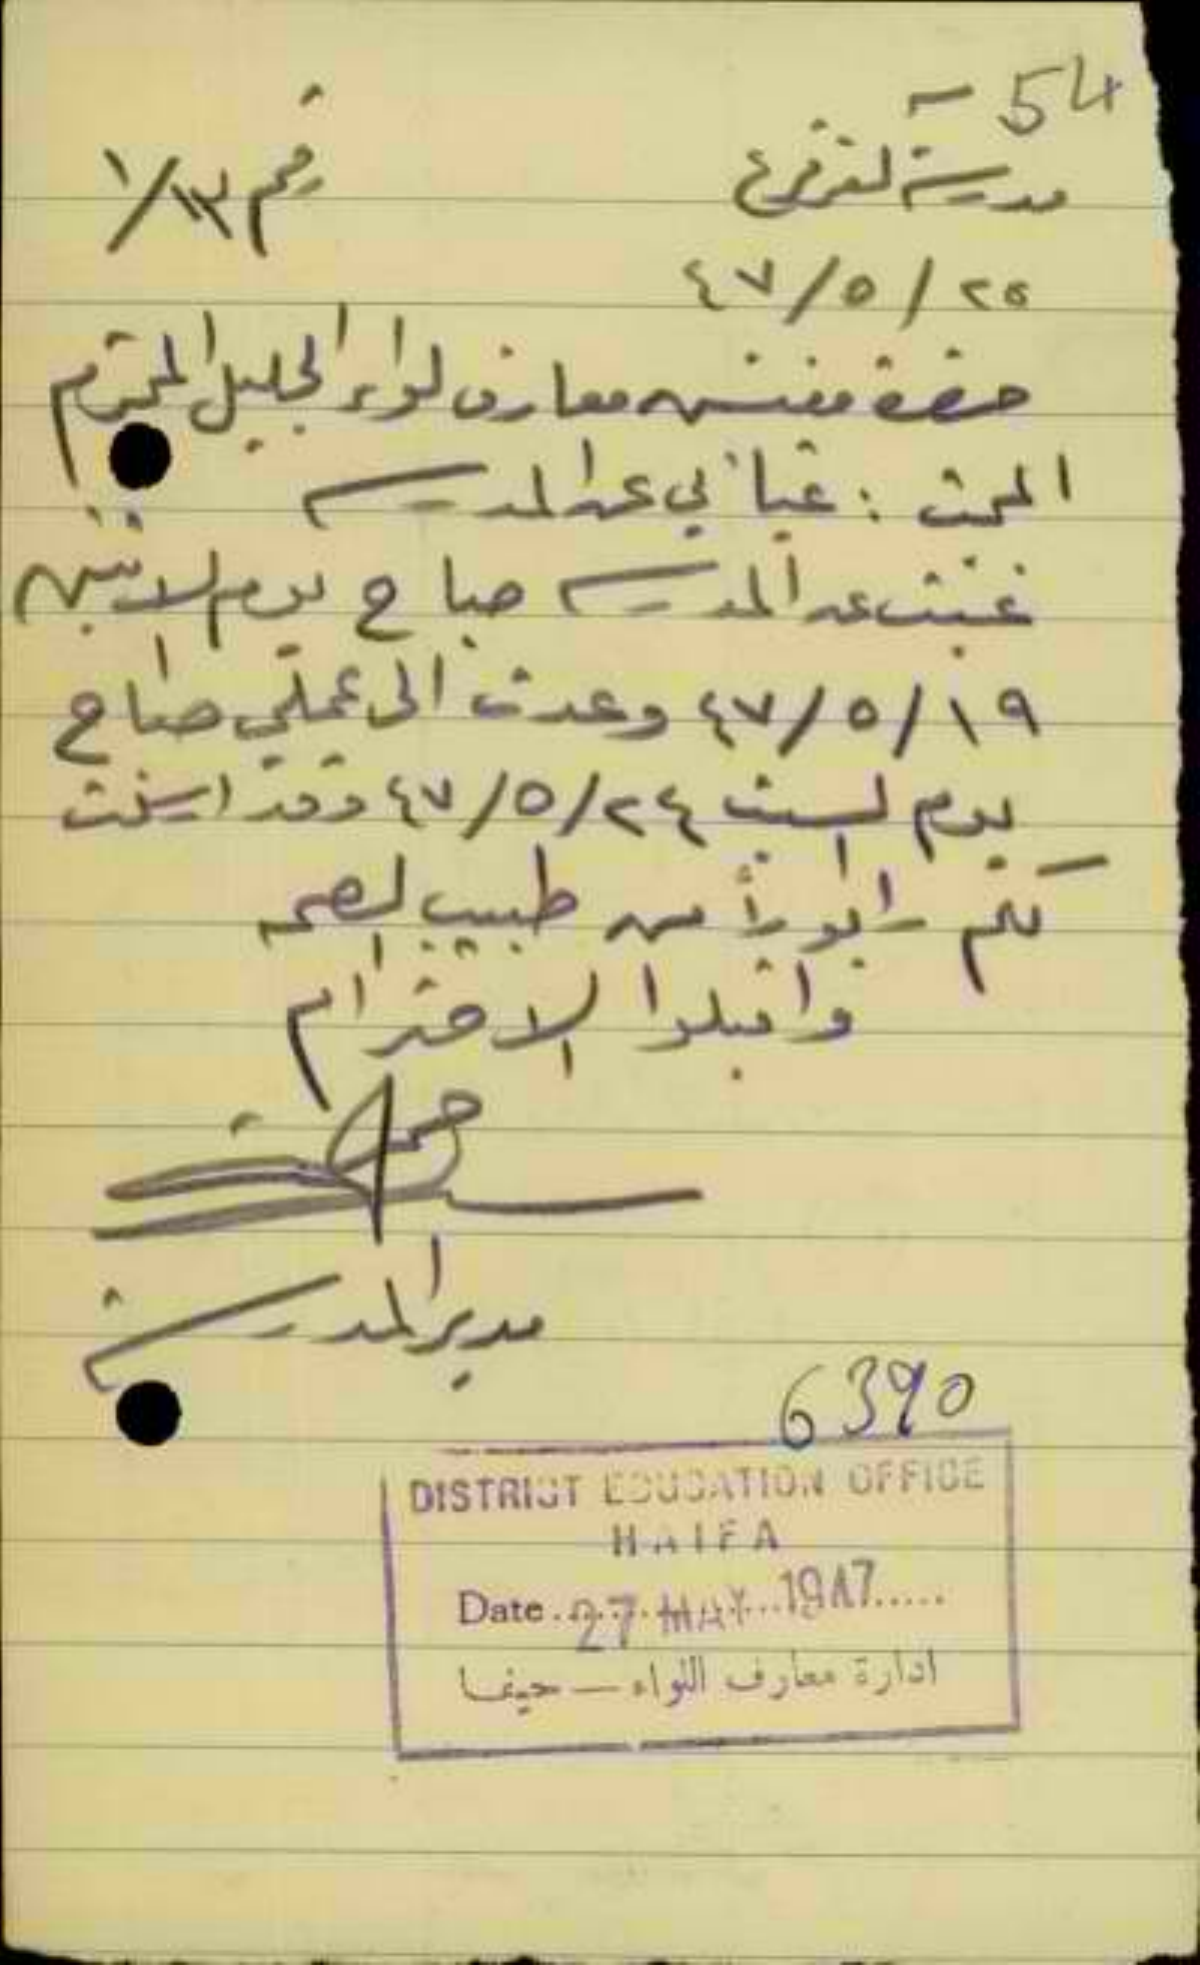 54
مدرسة
رقم ١٣/١
٢٥/٥/٤٧
حضرة مفتش معارف لواء الجليل المحترم
المبحث : غيابي عن المدرسة
غبت عن المدرسة صباح يوم الاثنين
١٩/٥/٤٧ وعدت الى عملي صباح
يوم السبت ٢٤/٥/٤٧ وقد ارسلت
لكم رابوراً من طبيب الصحة
واقبلوا الاحترام
مدير المدرسة
6390
DISTRICT EDUCATION OFFICE
HAIFA
Date 27 MAY 1947
ادارة معارف اللواء — حيفا